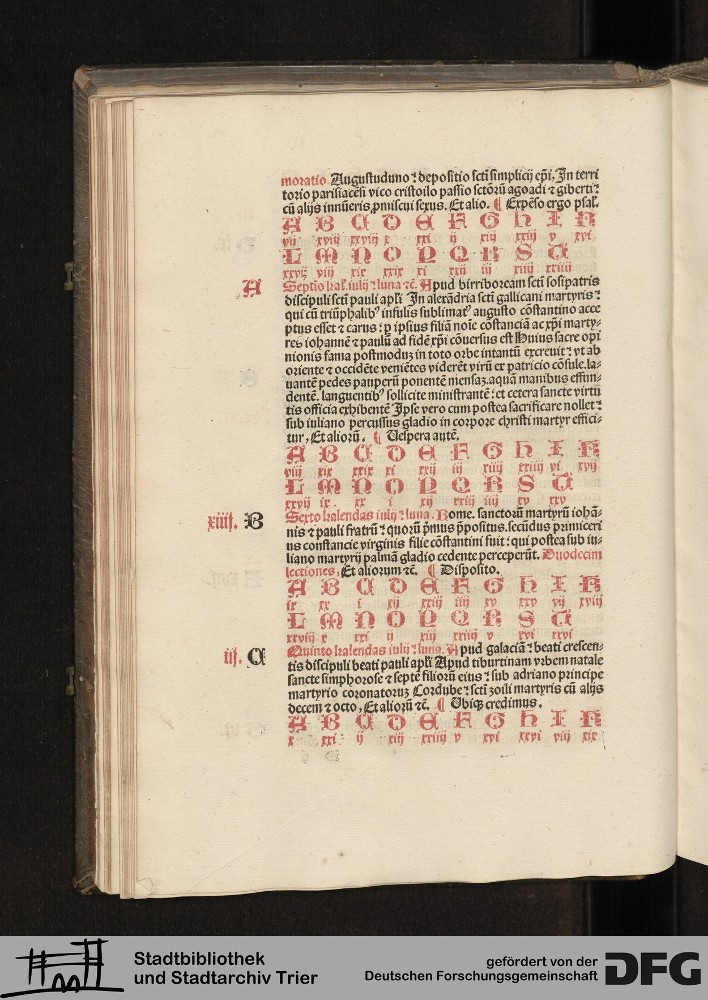 moratio Augustuduno ⁊ depositio scti simplicij ep̄i, In terri
torio parisiacēsi vico cristoilo passio sctōrū agoadi ⁊ giberti ⁊
cū alijs innūeris ꝓmiscui sexus. Et alio. ¶ Expēso ergo psal.
A B C D E F G H I K
vij xviij xxviij x xxi ij xiij xxiij v xvi
L M N O P Q R S T
xxvij viij xix xxix xi xxij iij xiiij xxiiij
A Septīo kal. iulij ⁊ luna ⁊c̄. Apud birriboream scti sosipatris
discipuli scti pauli apl̄i In alexādria scti gallicani martyris ⁊
qui cū triūphalibꝰ infulis sublimatꝰ augusto cōstantino acce
ptus esset ⁊ carus ⁊ p ipsius filiā noīe cōstanciā ac xp̄i marty-
res iohannē ⁊ paulū ad fidē xp̄i cōuersus est Huius sacre opi
nionis fama postmoduȝ in toto orbe intantū excreuit ⁊ vt ab
oriente ⁊ occidēte veniētes viderēt virū ex patricio cōsule. la-
uantē pedes pauperū ponentē mensaȝ. aquā manibus effun-
dentē. languentibꝰ sollicite ministrantē ⁊ et cetera sancte virtū
tis officia exhibentē Ipse vero cum postea sacrificare nollet ⁊
sub iuliano percussus gladio in corpore christi martyr effici-
tur, Et aliorū. ¶ Vespera autē.
A B C D E F G H I K
viij xix xxix xi xxij iij xiiij xxiiij vi xvij
L M N O P Q R S T
xxvij ix xx i xij xxiij iiij xv xxv
xiiij. B Sexto kalendas iulij ⁊ luna. Rome. sanctorū martyrū iohā-
nis ⁊ pauli fratrū ⁊ quorū p̄mus p̄positus. secūdus primiceri
us constancie virginis filie cōstantini fuit ⁊ qui postea sub iu-
liano martyrij palmā gladio cedente perceperūt. Duodecim
lectiones, Et aliorum ⁊c̄. ¶ Disposito.
A B C D E F G H I K
ix xx i xij xxiij iiij xv xxv vij xviij
L M N O P Q R S T
xxviij x xxi ij xiij xxiiij v xvi xxvi
iij. C Quinto kalendas iulij ⁊ luna. Apud galaciā ⁊ beati crescen-
tis discipuli beati pauli apl̄i Apud tiburtinam vrbem natale
sancte simphorose ⁊ septē filiorū eius ⁊ sub adriano principe
martyrio coronatoruȝ Cordube ⁊ scti zoili martyris cū alijs
decem ⁊ octo, Et aliorū ⁊c̄. ¶ Vbiqȝ credimus.
A B C D E F G H I K
x xxi ij xiij xxiiij v xvi xxvi viij xix
Stadtbibliothek
und Stadtarchiv Trier
gefördert von der
Deutschen Forschungsgemeinschaft
DFG